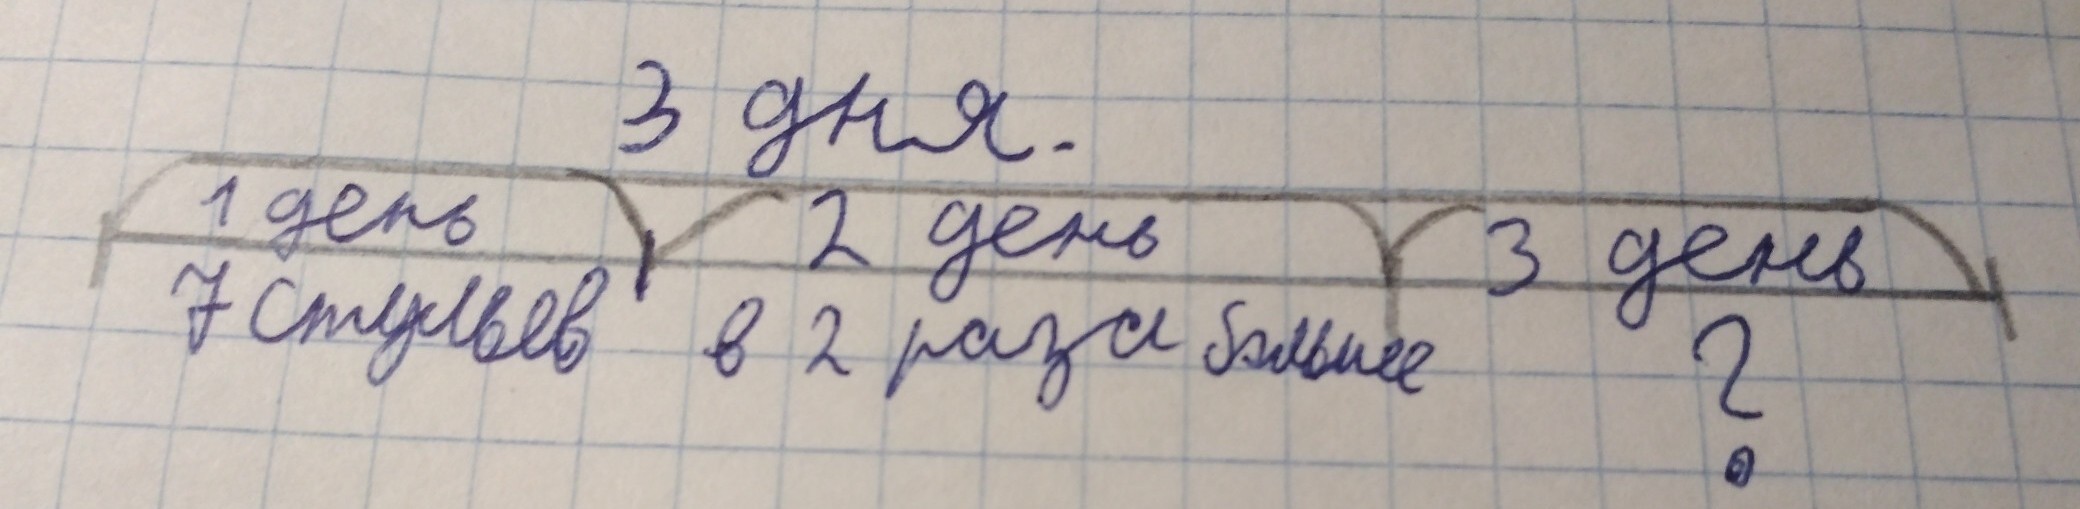 3 дня.
1 день 2 день 3 день
7 стульев в 2 раза больше ?